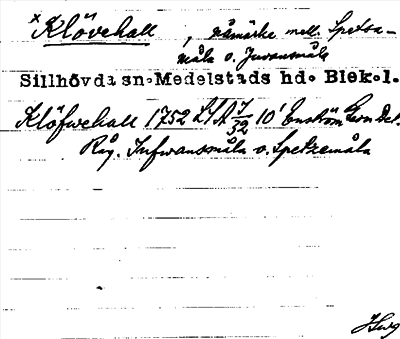 x Klövehall, råmärke mell. Spetsa-
måla o. Juransmåla
Sillhövda sn. Medelstads hd. Blek.l.
Klöfwehall 1752 LSA J/32 10' Enström Geom Det.
Råg. Jufwansmåla o. Spetzemåla